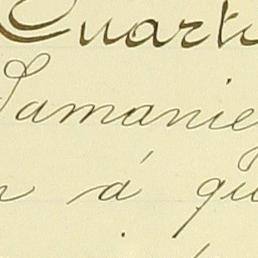 Cuart
Samanie
á qu